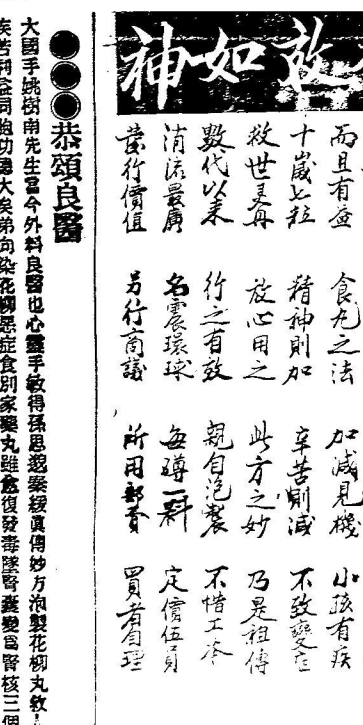 效如神
而且有益 食丸之法 加減見機 小孩有疾
十歲七粒 精神則加 辛苦則減 不致變
救世灵丹 放心用之 此方之妙 乃是祖傳
數代以來 行之有效 親自泡製 不惜工本
消流最廣 名震環球 每罇一料 定價伍員
行價值 另行商議 所用郵費 買者自理
●●◉恭頌良醫
大國手姚樹南先生當今外科良醫也心靈手敏得孫思邈藥線真傳妙方泡製花柳丸救
疾苦利益同胞功德大矣弟向染花柳惡症食別家藥丸雖愈復發毒墜腎囊變為腎核三個